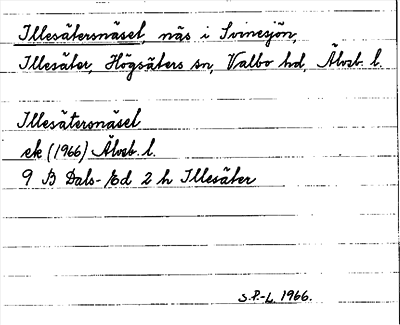 Illesätersnäset, näs i Svinesjön,
Illesäter, Högsäters sn, Valbo hd, Älvsb. l.
Illesätersnäset
ek (1966) Älvsb. l.
9 B Dals-Ed 2 h Illesäter
S.P.-L. 1966.